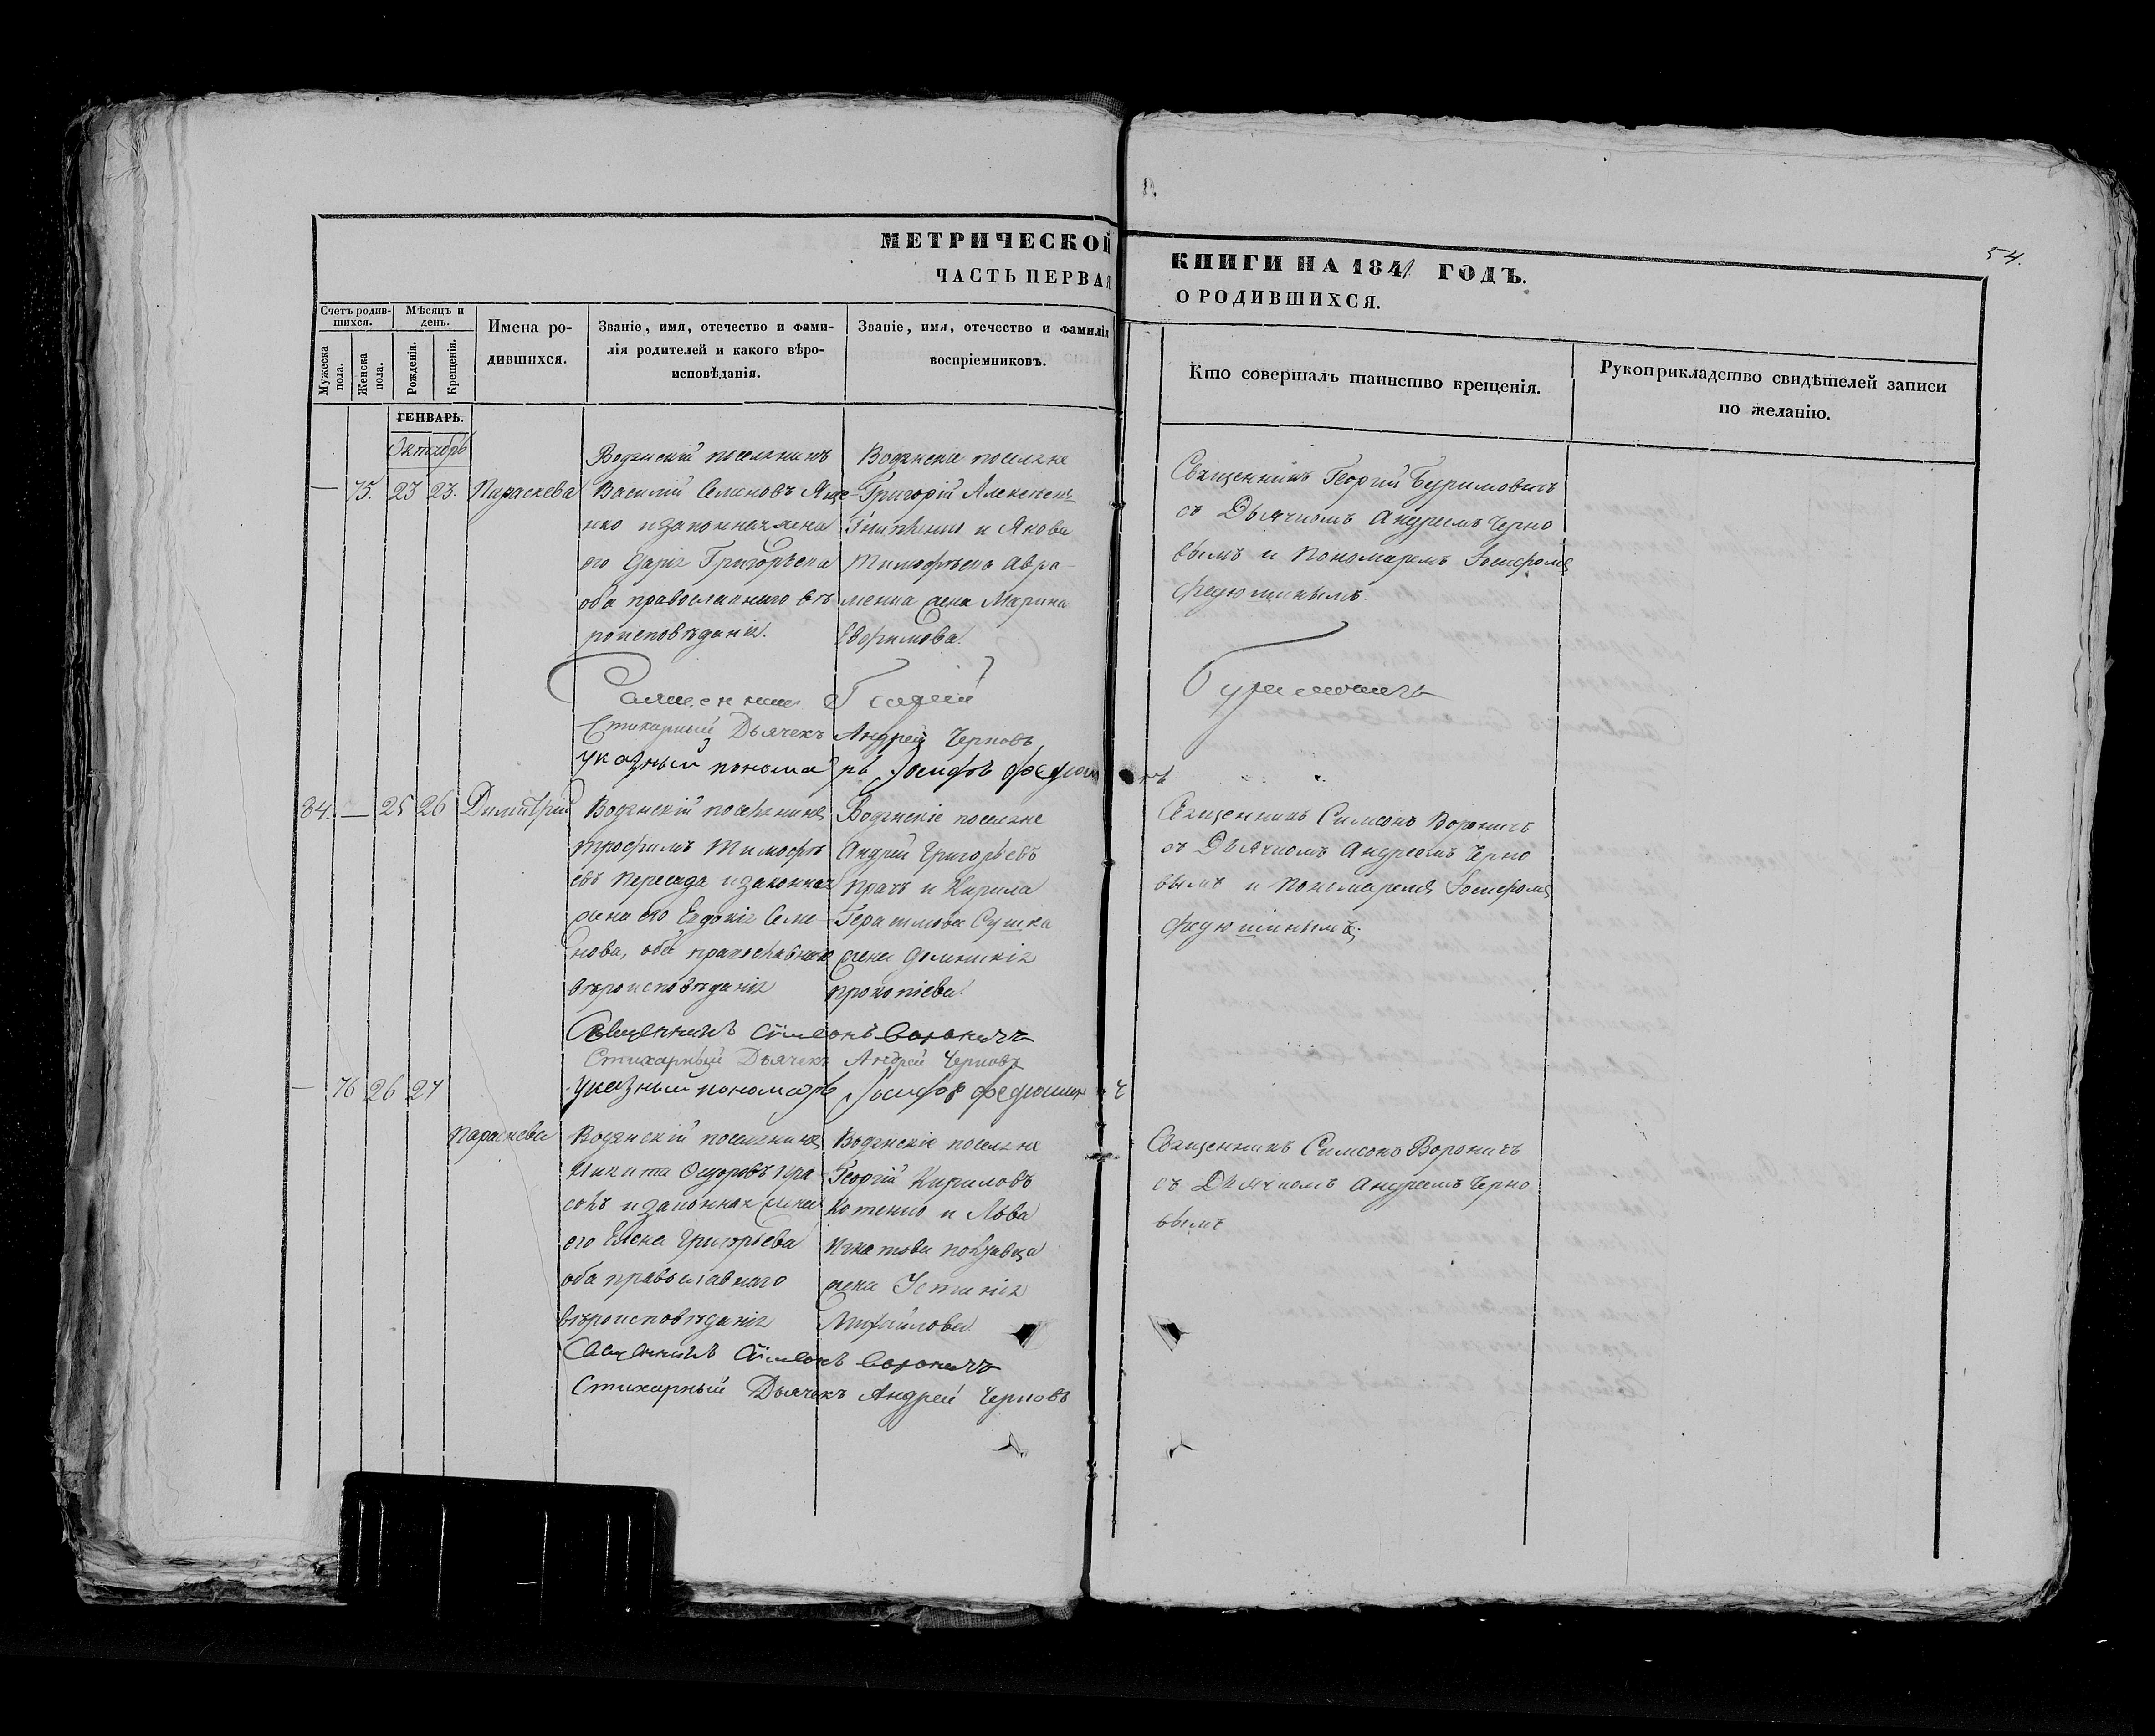 54.
МЕТРИЧЕСКОЙ КНИГИ НА 1841 ГОДЪ.
ЧАСТЬ ПЕРВАЯ О РОДИВШИХСЯ.
Счетъ родившихся.
Мужеска пола.
Женска пола.
Мѣсяцъ и день.
Рожденія.
Крещенія.
Имена родившихся.
Званіе, имя, отечество и фамилія родителей и какого вѣроисповѣданія.
Званіе, имя, отечество и фамилія воспріемниковъ.
Кто совершалъ таинство крещенія.
Рукоприкладство свидѣтелей записи по желанію.
ГЕНВАРЬ.
Октябрь
— 75. 23 23. Параскева
Водянскій поселянинъ
Василій Семеновъ Яще-
нко и законная жена
его Дарія Григорьева
оба православнаго вѣ
роисповѣданія.
Водянскіе поселяне
Григорій Алексѣевъ
и Якова
Тимофѣева Авра-
менка жена Марина
Евфимова.
Священникъ Георгій Буримовичъ
съ Дьячкомъ Андреемъ Черно
вымъ и Пономаремъ Іосифомъ
Федюшинымъ.
Священникъ Георгій Буримовичъ
Стихарный Дьячекъ Андрей Черновъ
Указный пономарь Іосифъ Федюшинъ
34. — 25 26 Димитрій
Водянскій поселянинъ
Трофимъ Тимофѣ
евъ Пересада и законная
жена его Евдокія Семе-
нова, оба православнаго
вѣроисповѣданія
Водянскіе поселяне
Андрей Григорьевъ
Прачъ и Кирила
Герасимова Сушка
жена Домникія
Прокопіева.
Священникъ Симеонъ Вороничъ
съ Дьячкомъ Андреемъ Черно
вымъ и Пономаремъ Іосифомъ
Федюшинымъ.
Священникъ Симеонъ Вороничъ
Стихарный Дьячекъ Андрей Черновъ
Указный пономарь Іосифъ Федюшинъ
— 76 26 27
Параскева
Водянскій поселянинъ
Никита Федоровъ
и законная жена
его Елена Григорьева
оба православнаго
вѣроисповѣданія
Водянскіе поселяне
Георгій Кириловъ
Котенко и Льва
Игнатова
жена Устинія
Михайлова.
Священникъ Симеонъ Вороничъ
съ Дьячкомъ Андреемъ Черно
вымъ
Священникъ Симеонъ Вороничъ
Стихарный Дьячекъ Андрей Черновъ